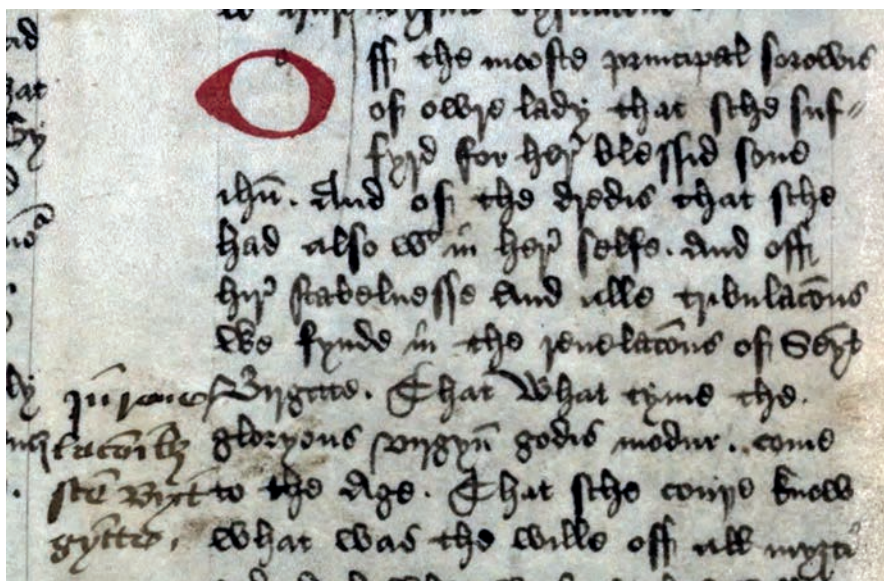 Off the mooste principal sorowis
of owre lady that sche suf〃
fyrd for her̉ blessid sone
ihū. And of the dredis that sche
had also wt in her̉ selfe. And off
hir̉ stabelnesse And alle tribulacōns
We fynde in the reuelacōns of Seyt
Birgitte. That What tyme the.
gloryous virgyn̄ godis modur. come
to the Age. That sche couþe know
what was the wille off all myȝti
in reue
lacōībȝ
scē Birt
gytte.